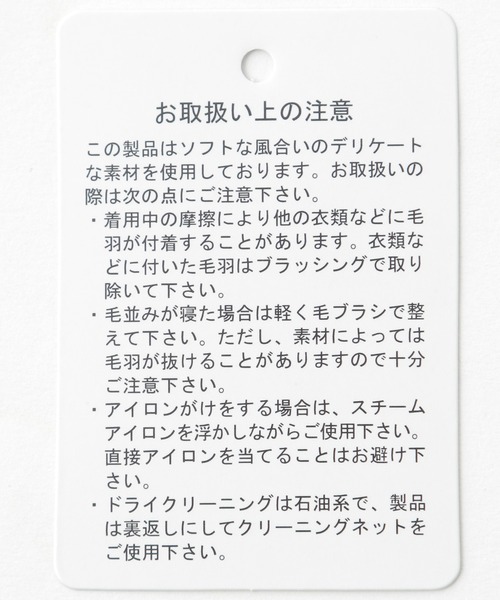 お取扱い上の注意
この製品はソフトな風合いのデリケート
な素材を使用しております。お取扱いの
際は次の点にご注意下さい。
・着用中の摩擦により他の衣類などに毛
羽が付着することがあります。衣類な
どに付いた毛羽はブラッシングで取り
除いて下さい。
・毛並みが寝た場合は軽く毛ブラシで整
えて下さい。ただし、素材によっては
毛羽が抜けることがありますので十分
ご注意下さい。
・アイロンがけをする場合は、スチーム
アイロンを浮かしながらご使用下さい。
直接アイロンを当てることはお避け下
さい。
・ドライクリーニングは石油系で、製品
は裏返しにしてクリーニングネットを
ご使用下さい。